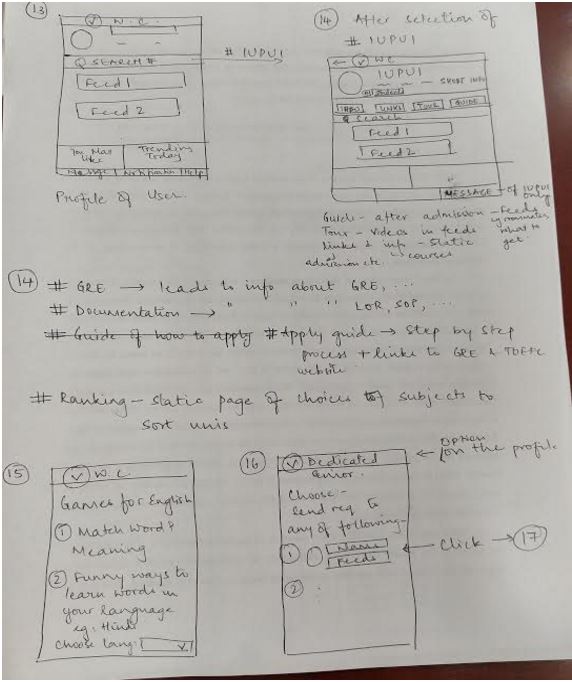 13
V W.C.
SEARCH #
Feed 1
Feed 2
You May
Like
Trending
Today
Message
Notification
Help
Profile of User.
# IUPUI
14 After selection of
# IUPUI
← V W.C
IUPUI
SHORT INFO
INFO LINKS TOUR GUIDE
Search
Feed 1
Feed 2
MESSAGE → of IUPUI
only
Guide - after admission - feeds
Tour - videos in feeds
what to
get.
links & info - static
admission etc. courses
14 # GRE → leads to info about GRE, ...
# Documentation → " " " LOR, SOP, ...
# Guide of how to apply # Apply guide → step by step
process + links to GRE & TOEFL
website
# Ranking - static page of choices of subjects to
sort unis
15
V W.C.
Games for English
1 Match Word &
Meaning
2 Funny ways to
learn words in
your language
eg: Hindi
Choose lang: V
16
V Dedicated
← OPTION
on the profile
Choose:-
Send req to
any of following-
1 Name
Feeds
← Click → 17
2 :